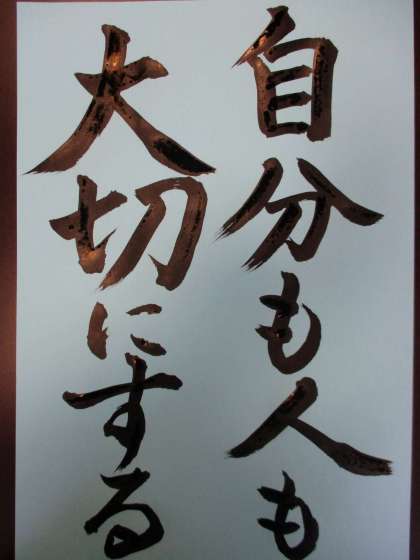 自分も人も
大切にする